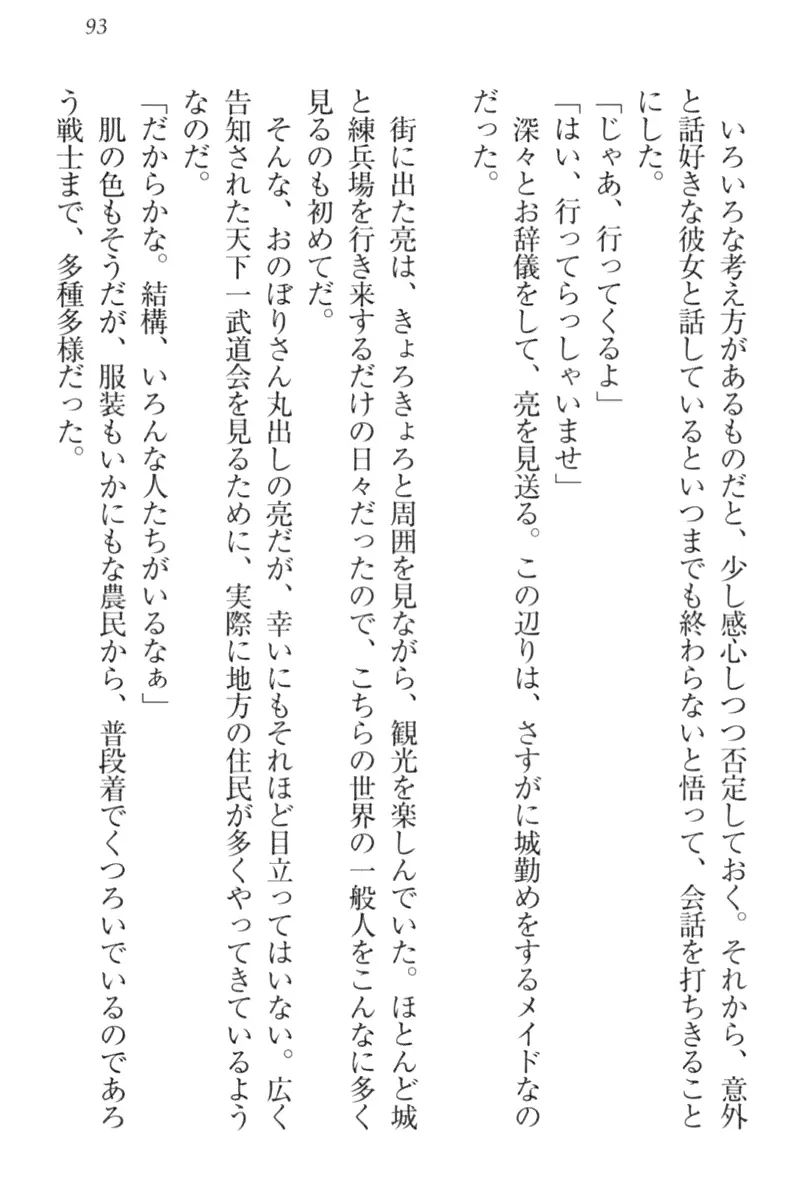 93
　いろいろな考え方があるものだと、少し感心しつつ否定しておく。それから、意外
と話好きな彼女と話しているといつまでも終わらないと悟って、会話を打ちきること
にした。
「じゃあ、行ってくるよ」
「はい、行ってらっしゃいませ」
　深々とお辞儀をして、亮を見送る。この辺りは、さすがに城勤めをするメイドなの
だった。
　街に出た亮は、きょろきょろと周囲を見ながら、観光を楽しんでいた。ほとんど城
と練兵場を行き来するだけの日々だったので、こちらの世界の一般人をこんなに多く
見るのも初めてだ。
　そんな、おのぼりさん丸出しの亮だが、幸いにもそれほど目立ってはいない。広く
告知された天下一武道会を見るために、実際に地方の住民が多くやってきているよう
なのだ。
「だからかな。結構、いろんな人たちがいるなぁ」
　肌の色もそうだが、服装もいかにもな農民から、普段着でくつろいでいるのであろ
う戦士まで、多種多様だった。